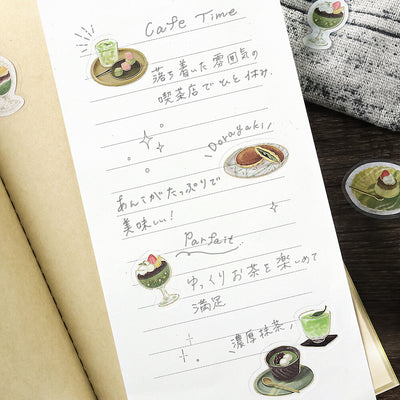 Cafe Time
落ち着いた雰囲気の
喫茶店でひと休み.
Dorayaki
あんこがたっぷりで
美味しい!
Parfait
ゆっくりお茶を楽しめて
満足
濃厚抹茶